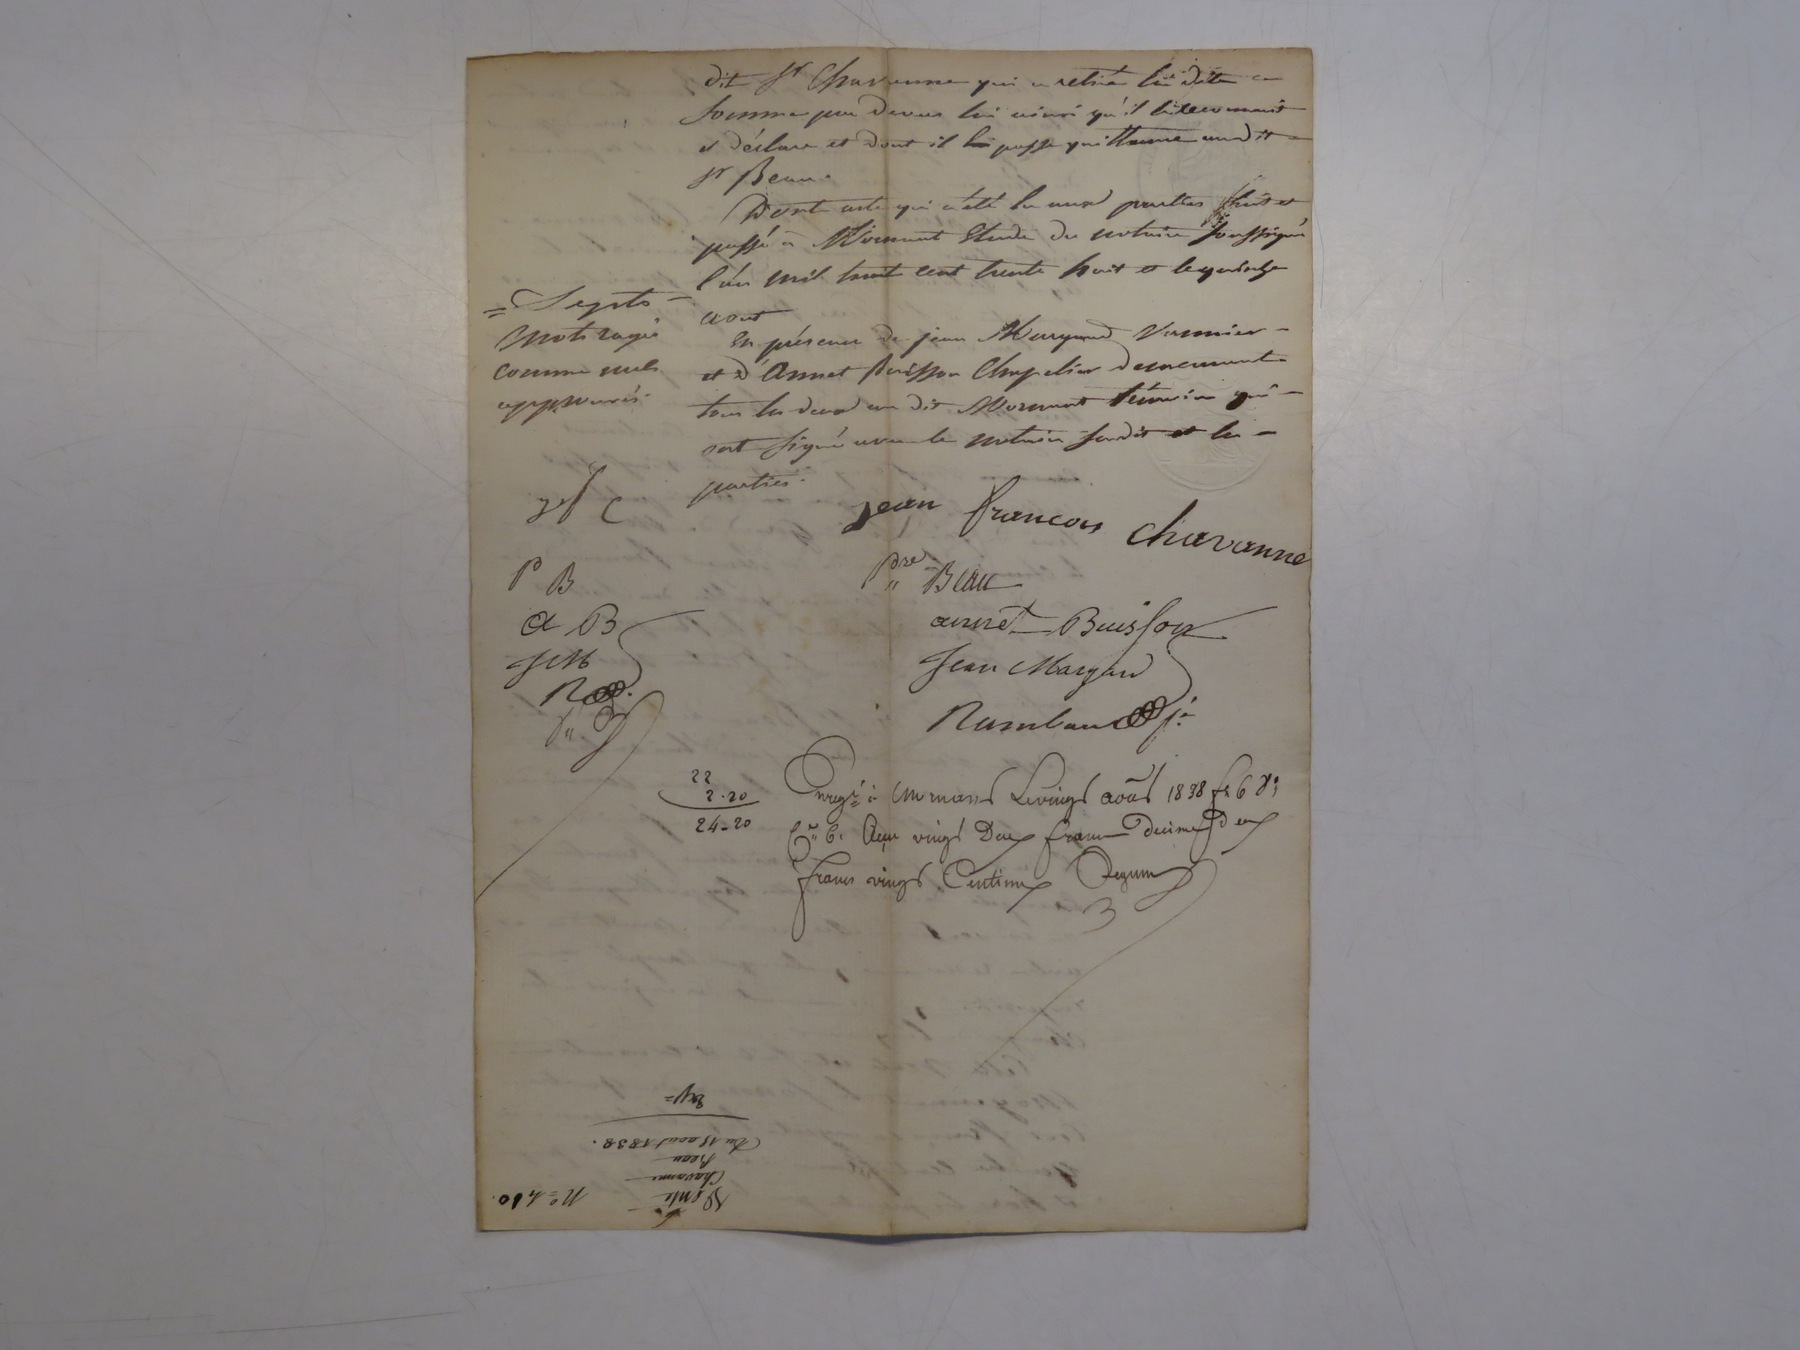 dit Sr Chavanne qui a retiré la dite
somme par devers lui ainsi qu'il le reconnait
et déclare et dont il passe quittance audit
Sr Beau.
Dont acte qui a été lu aux parties fait et
passé à Mornant Etude du notaire soussigné
l'an mil huit cent trente huit et le quinze
aout
En présence de jean Margand
et d'Annet Buisson Chapelier demeurant
tous les deux au dit Mornant témoins qui
ont signé avec le notaire susdit et les
parties.
= Septs
mots rayés
comme nuls
approuvés.
jf C
P B
a B
J M
R
jean francois chavanne
Pre Beau
annet Buisson
Jean Margan
Rambaud je
22
2.20
24-20
Enregré à Mornant Le vingt août 1838 fo 6 Vo
Co 6. Reçu vingt Deux francs décime deux
francs vingt Centimes
No 410.
Vente
Chavanne
Beau
Du 15 aout 1838.